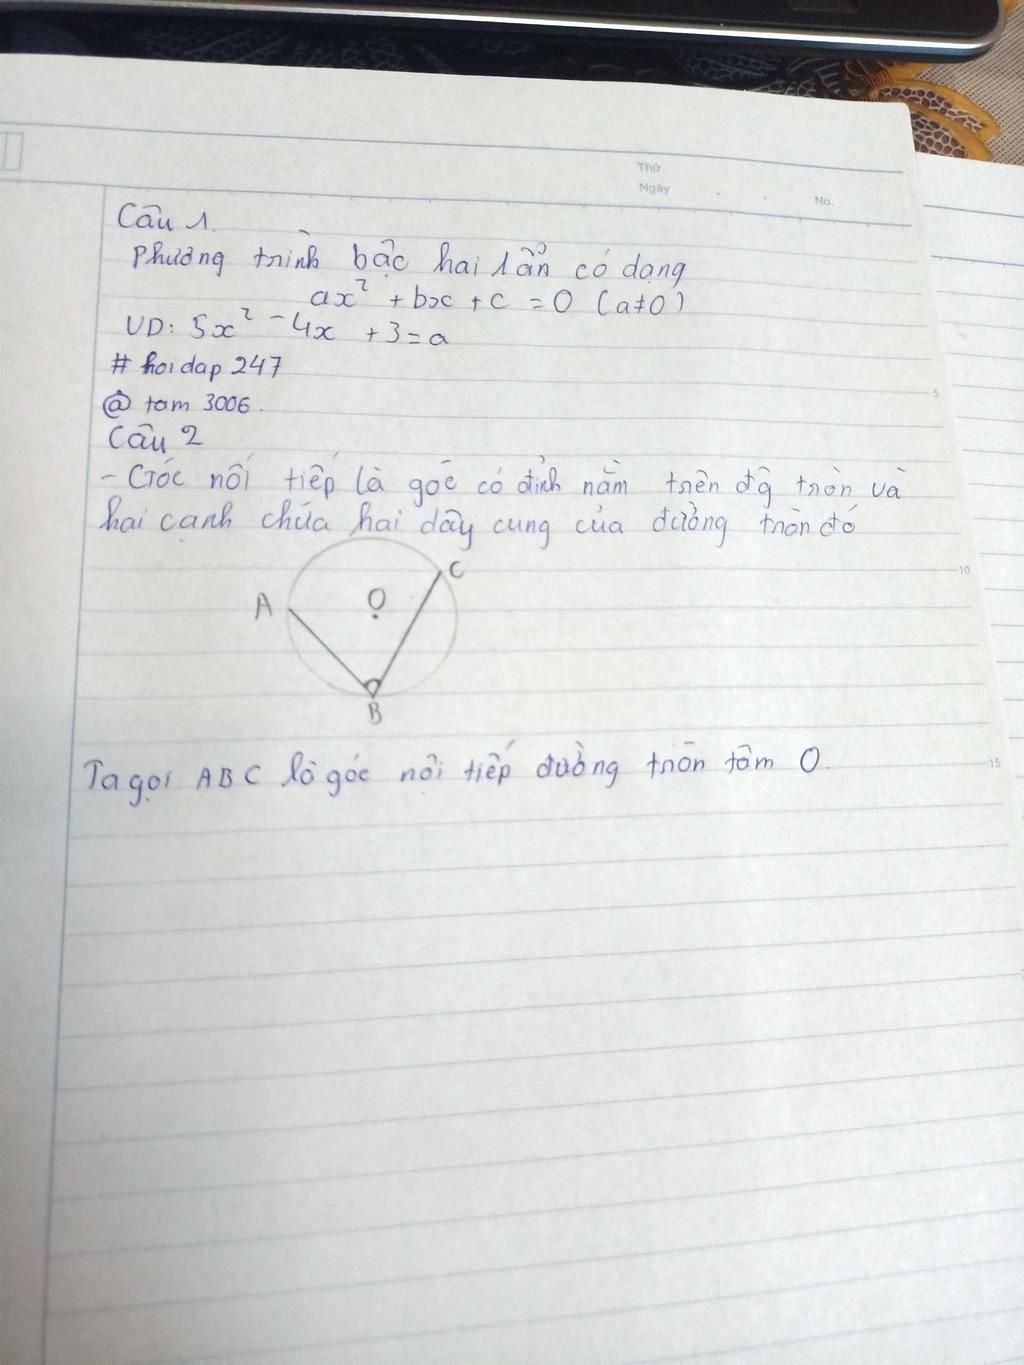 Thứ
Ngày
No.
Câu 1.
Phương trình bậc hai 1 ẩn có dạng
ax² + bx + c = 0 (a≠0)
VD: 5x² - 4x + 3 = a
# hoidap 247
@ tam 3006.
Câu 2
- Góc nối tiếp là góc có đỉnh nằm trên đg tròn và
5
hai cạnh chứa hai dây cung của đường tròn đó
C
10
A
O
B
Ta gọi ABC là góc nội tiếp đường tròn tâm O.
15